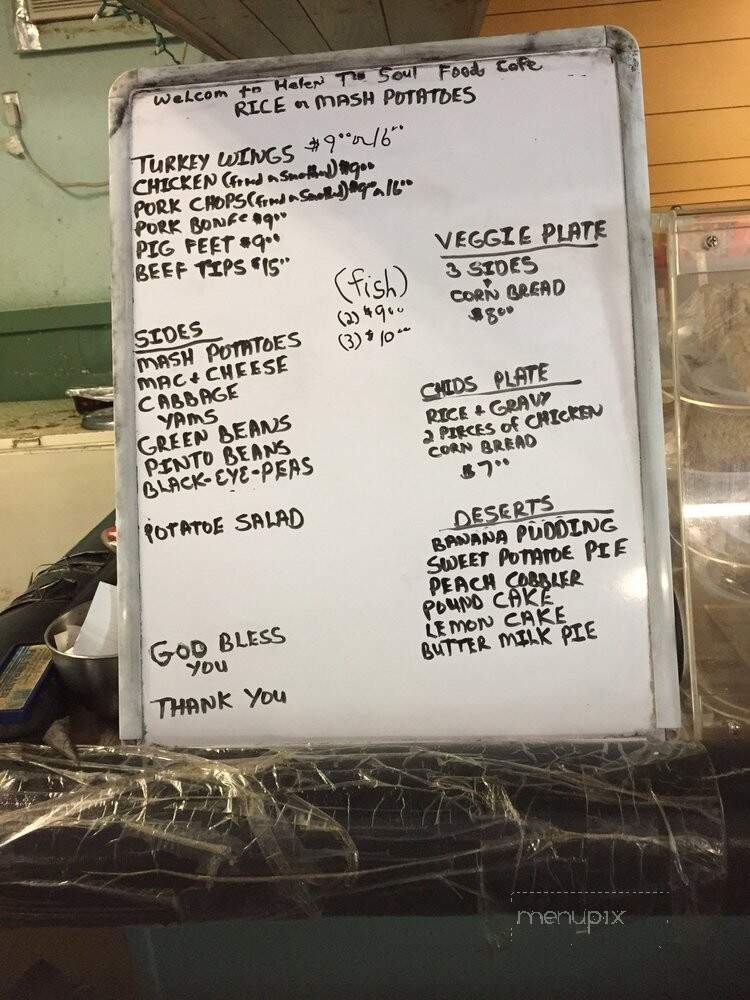 Welcom to Helen The Soul Food Cafe
RICE or MASH POTATOES
TURKEY WINGS $9.00 or 16.00
CHICKEN (fried or Smothed) $9.00
PORK CHOPS (fried or Smothed) $9.00 or 16.00
PORK BONES $9.00
PIG FEET $9.00
BEEF TIPS $15.00
(fish)
(2) $9.00
(3) $10.00
SIDES
MASH POTATOES
MAC + CHEESE
CABBAGE
YAMS
GREEN BEANS
PINTO BEANS
BLACK-EYE-PEAS
POTATOE SALAD
GOD BLESS
YOU
THANK YOU
VEGGIE PLATE
3 SIDES
CORN BREAD
$8.00
CHIDS PLATE
RICE + GRAVY
2 PIECES of CHICKEN
CORN BREAD
$7.00
DESERTS
BANANA PUDDING
SWEET POTATOE PIE
PEACH COBBLER
POUND CAKE
LEMON CAKE
BUTTER MILK PIE
menupix